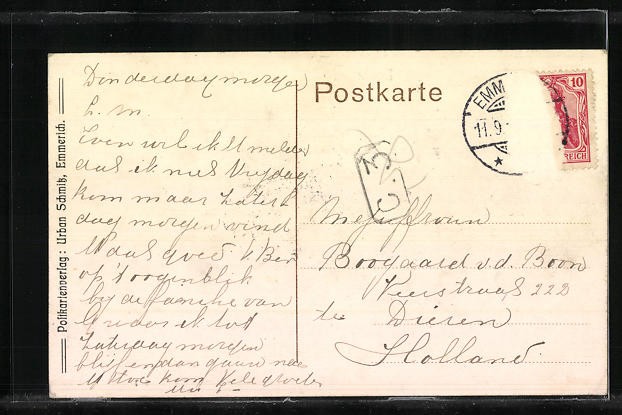 Postkartenverlag: Urban Schmitz, Emmerich.
Donderdagmorgen
L. M.
Even wil ik U melden
dat ik niet Vrijdag
kom maar Zater
dag morgen vind
U dat goed k Ben
op 't oogenblik
bij de familie van
ik tot
Zaterdag morgen
blijf en dan gaan naar
U toe kom
Postkarte
EMM
11.9.
10
REICH
Mejuffrouw
Boogaard v.d. Boon
222
te Dieren
Holland.